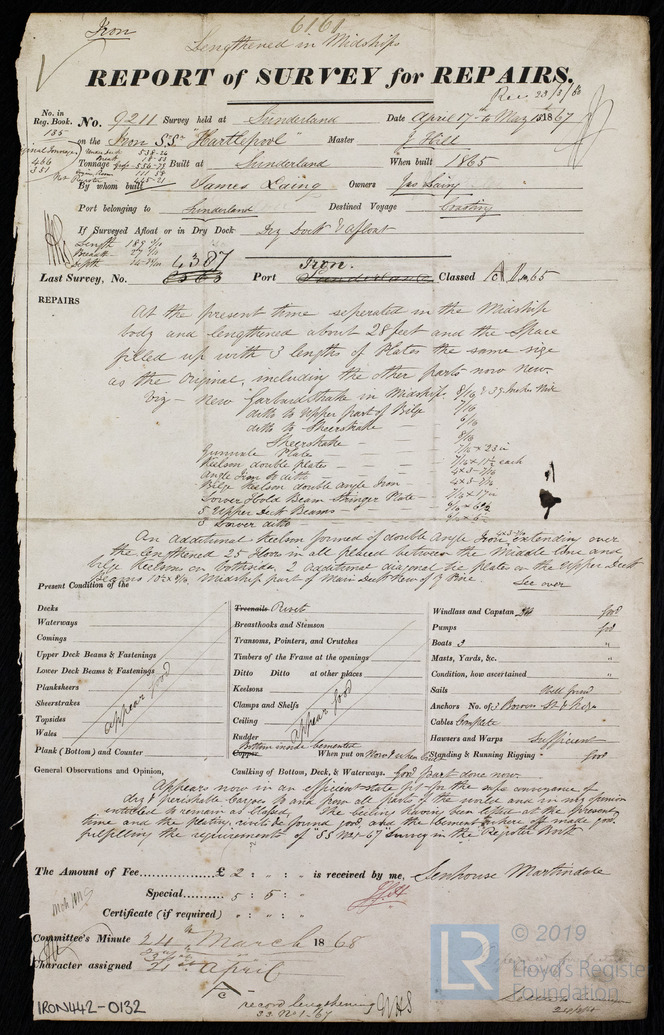 Iron
6161
Lengthened in Midships
REPORT of SURVEY for REPAIRS.
Rec. 23/3/68
No. in Reg. Book. 185
No. 9211 Survey held at Sunderland Date April 17th to May 1867
on the Iron SS "Hartlepool" Master J Hill
Tonnage Built at Sunderland When built 1865
By whom built James Laing Owners Jas Laing
Port belonging to Sunderland Destined Voyage Coasting
If Surveyed Afloat or in Dry Dock Dry Dock & afloat
Length 185
Breadth 27
Depth
Last Survey, No. 4387 Port Iron. Sunderland Classed A 1 65
REPAIRS
At the present time seperated in the Midship
body and lengthened about 28 feet and the Space
filled up with 3 lengths of Plates the same size
as the original, including the other parts now new.
Viz – New Garboard Strake in Midship
ditto to Upper part of Bilge 7/16
ditto to Sheerstrake 6/16
Sheerstrake 8/16
Gunwale Plate
Keelson double plates each
Angle Iron to ditto
Bilge Keelson double Angle Iron
Lower Hold Beam Stringer Plate
5 Upper Deck Beams
3 Lower ditto
An additional Keelson formed of double Angle Iron extending over
the lengthened 25 floors in all placed between the Middle line and
bilge Keelsons on bothside, 2 additional diagonal tie plates on the Upper Deck
Beams Midship part of Main Deck New of Y Pine See over
Present Condition of the
Decks
Waterways
Comings
Upper Deck Beams & Fastenings
Lower Deck Beams & Fastenings
Planksheers
Sheerstrakes
Topsides
Wales
Plank (Bottom) and Counter
appear good
Treenails Rivets
Breasthooks and Stemson
Transoms, Pointers, and Crutches
Timbers of the Frame at the openings
Ditto Ditto at other places
Keelsons
Clamps and Shelfs
Ceiling
Rudder
Bottom inside cemented
Copper When put on Now & when built
Caulking of Bottom, Deck, & Waterways. good part done now.
appear good
Windlass and Capstan good
Pumps good
Boats 3 "
Masts, Yards, &c. "
Condition, how ascertained "
Sails Well found
Anchors No. of 3 Bower
Cables Complete
Hawsers and Warps Sufficient
Standing & Running Rigging good
General Observations and Opinion,
Appears now in an efficient state fit for the safe conveyance of
dry & perishable cargoes to and from all parts of the world and in my opinion
entitled to remain as Classed. The Ceiling having been lifted at the present
time and the plating, rivets &c found good, and the Cement where off made good
fulfilling the requirements of "SS No 1 67" Survey in the Register Book
The Amount of Fee £ 2 : " : " is received by me, Senhouse Martindale
Special 5 : 5 : "
Certificate (if required) " : " : "
Committee's Minute 24th March 1868
Character assigned 21st April
A
record lengthening
SS. No 1-67
IRON442-0132
LR
© 2019
Lloyd's Register
Foundation